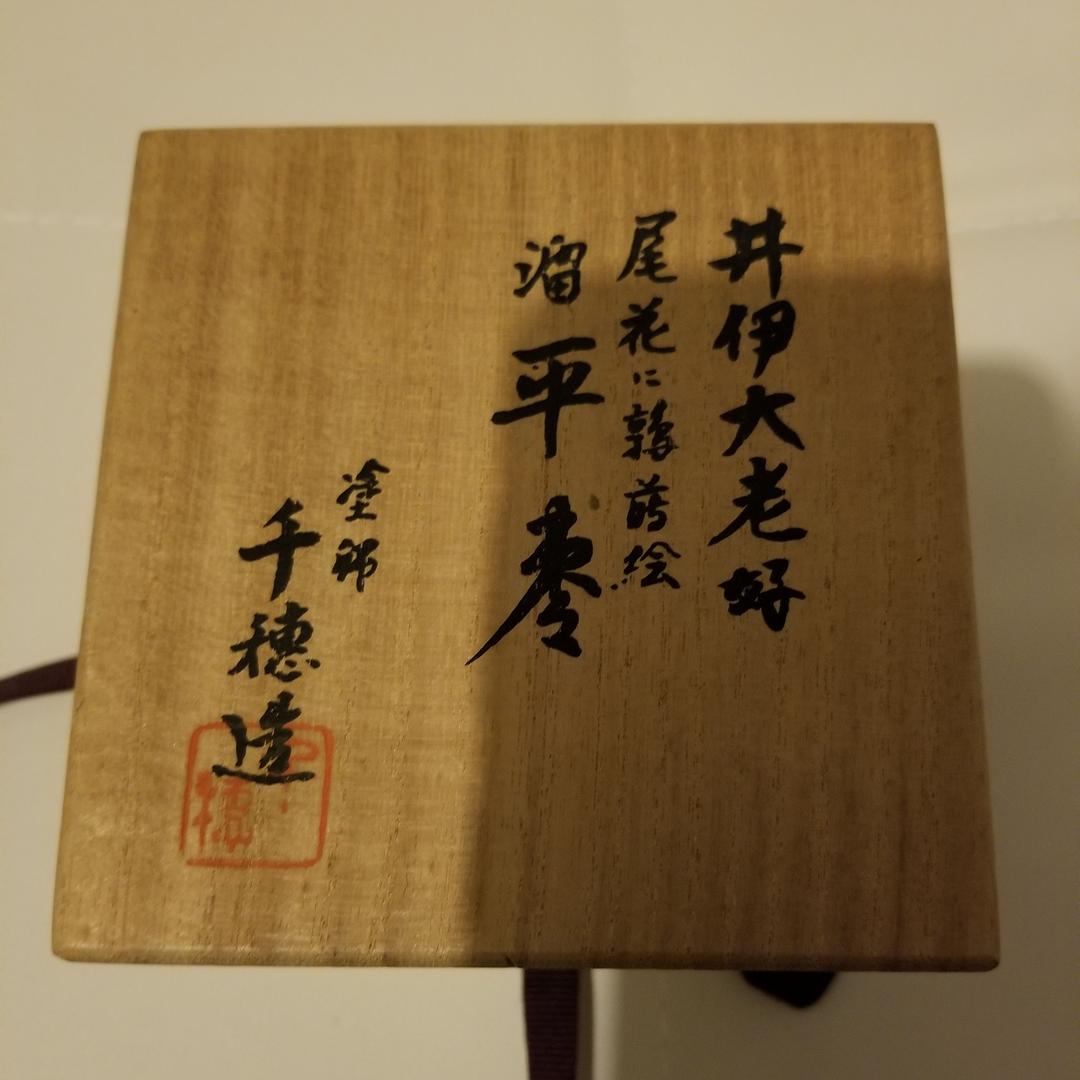 井伊大老好
尾花に鶉蒔絵
溜平棗
塗師
千穂造